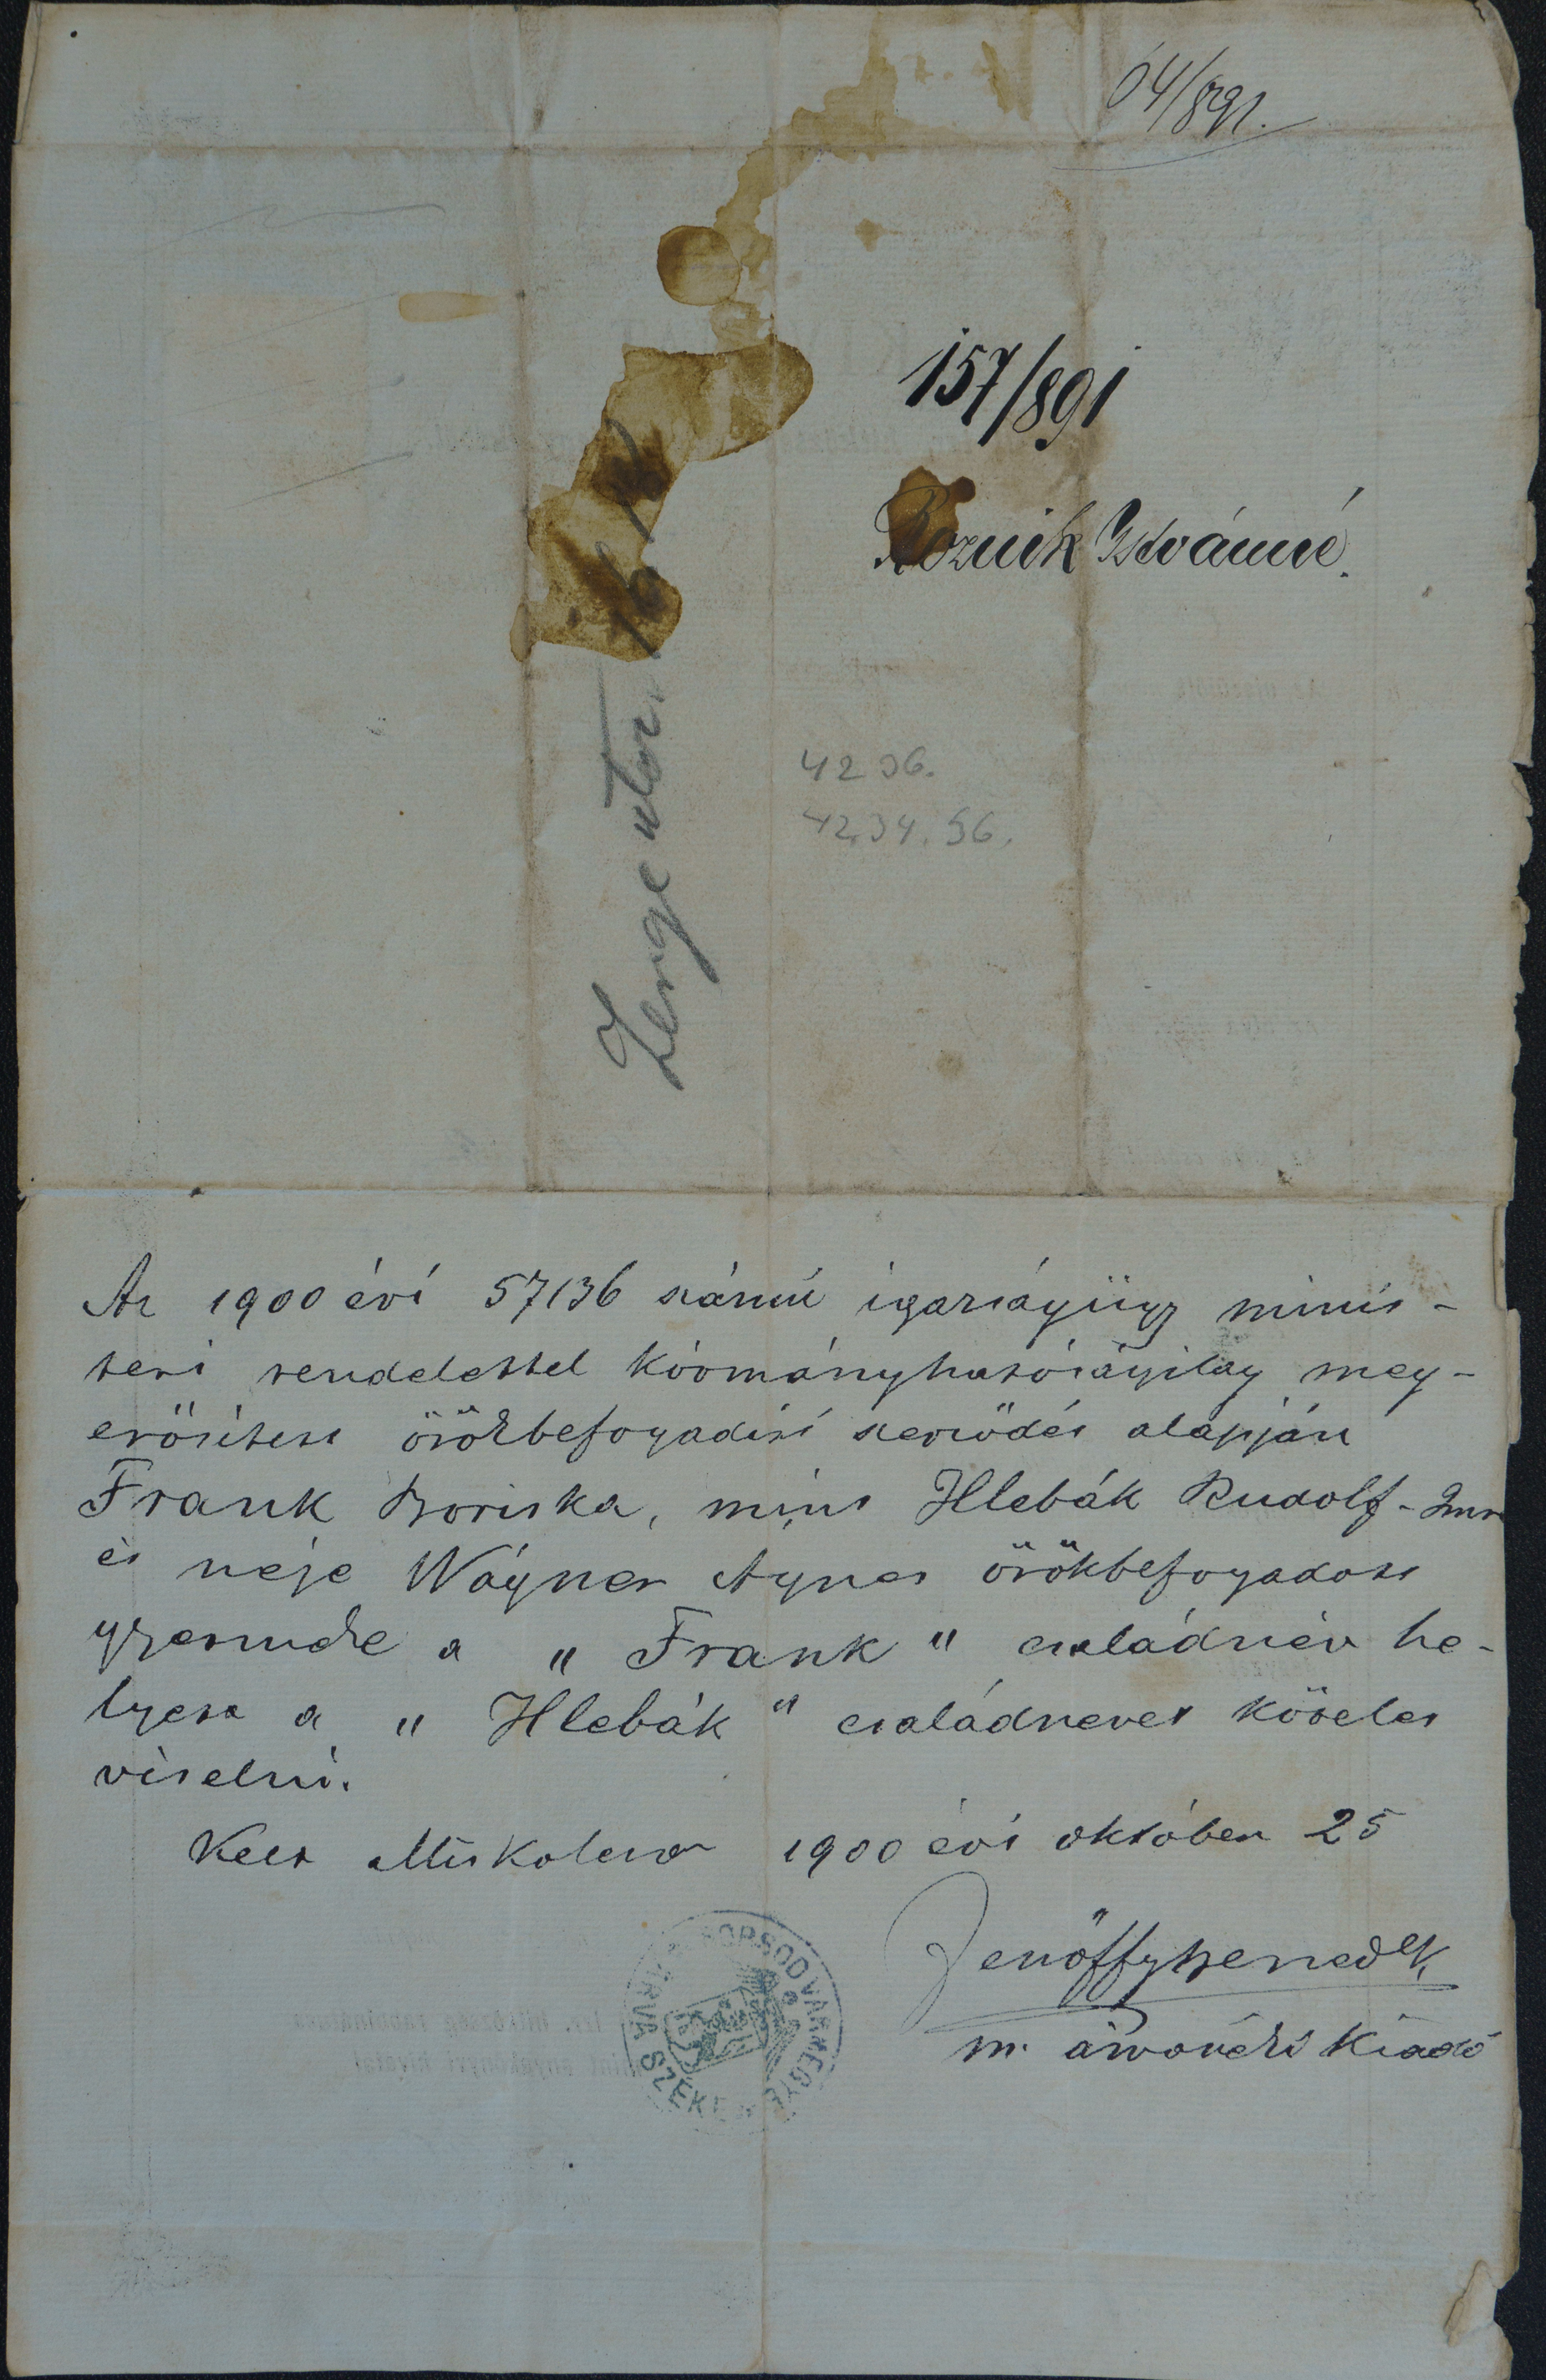 04/891.
157/891
Roznik Istvánné.
Zenge utca. 16
42 36.
4234. 56.
Az 1900 évi 57136 számú igazságügy minis-
teri rendelettel kórmányhatóságilag meg-
erősitett örökbefogadási szerződés alapján
Frank Boriska, mint Hlebák Rudolf-Imre
és neje Wágner Ágnes örökbefogadott
gyermeke a „Frank" családnév he-
lyett a „Hlebák" családnevet köteles
viselni.
Kelt Miskolcon 1900 évi október 25
Jenőffy Benedek
m. árvaszéki Kiadó
BORSODVÁRMEGYE ÁRVA SZÉKE